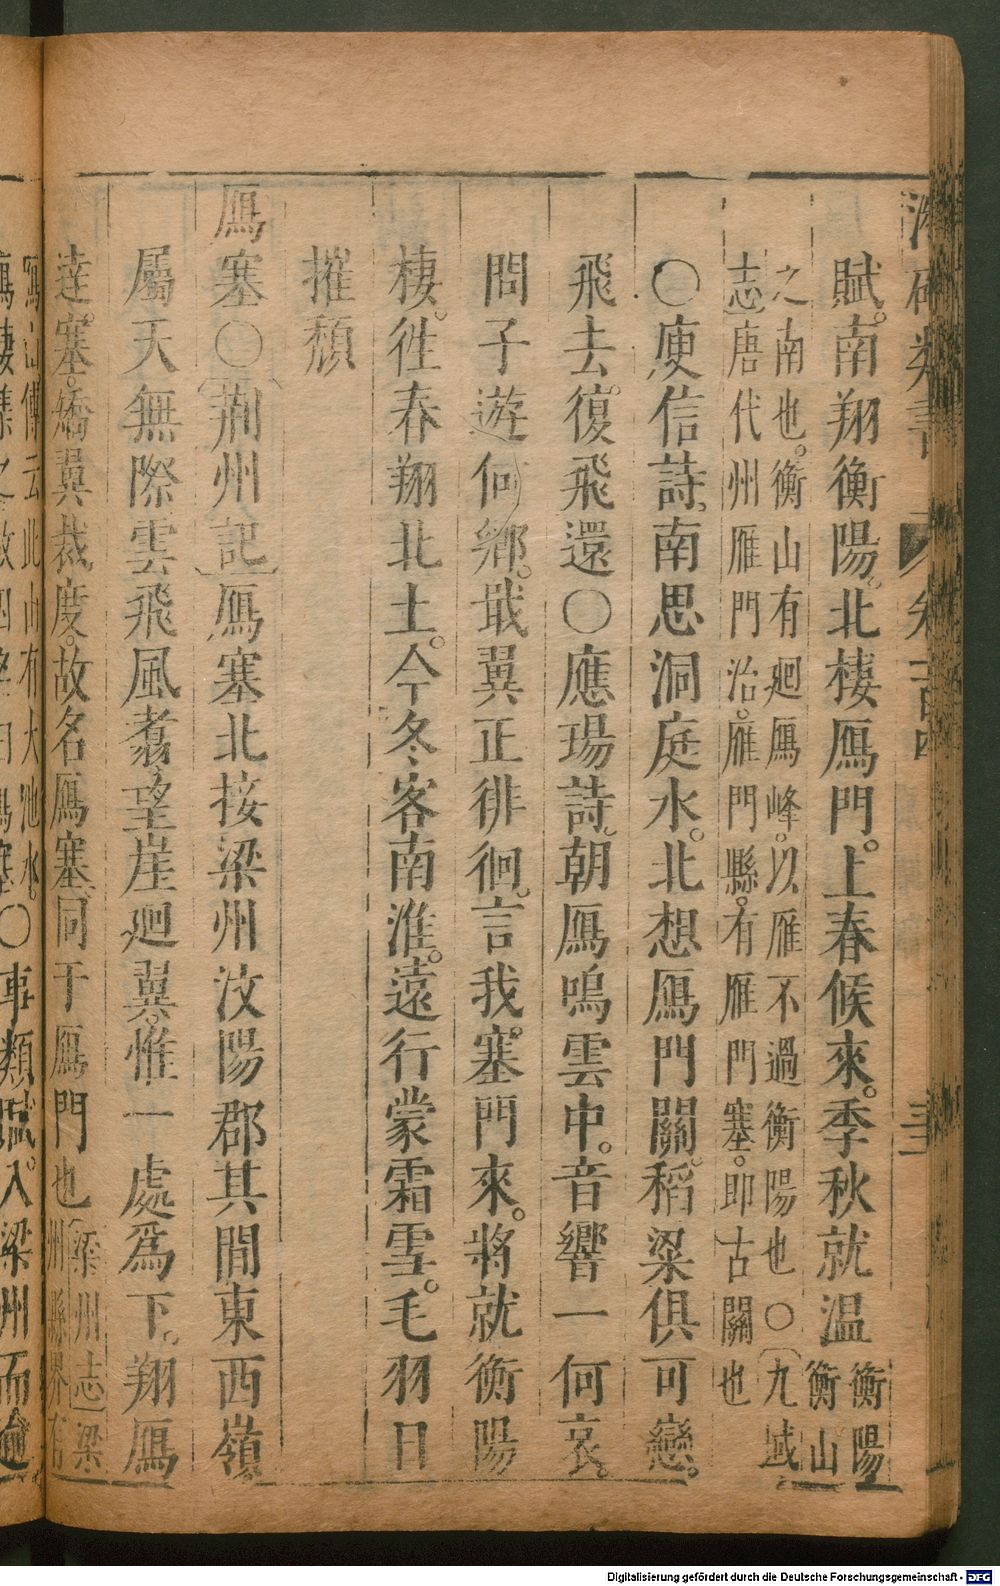 賦。南翔衡陽。北棲鴈門。上春候來。季秋就温 衡陽衡山
之南也。衡山有廻鴈峰。以雁不過衡陽也〇九域
志唐代州雁門治。雁門縣。有雁門塞。即古關也
〇庾信詩。南思洞庭水。北想鴈門關。稻粱俱可戀。
飛去復飛還〇應瑒詩。朝鴈鳴雲中。音響一何哀。
問子遊何鄉。戢翼正徘徊。言我塞門來。將就衡陽
棲。徃春翔北土。今冬客南淮。遠行蒙霜雪。毛羽日
摧頹
鴈塞〇荆州記鴈塞北接梁州汶陽郡其間東西嶺
屬天無際雲飛風翥。望崖廻翼。惟一處爲下。翔鴈
達塞。矯翼裁度。故名鴈塞同于鴈門也 梁州志梁州縣界有
鴈山傳云此山有大池水。〇事類賦。入梁州而
鴈棲集之故因名曰鴈塞
Digitalisierung gefördert durch die Deutsche Forschungsgemeinschaft - DFG